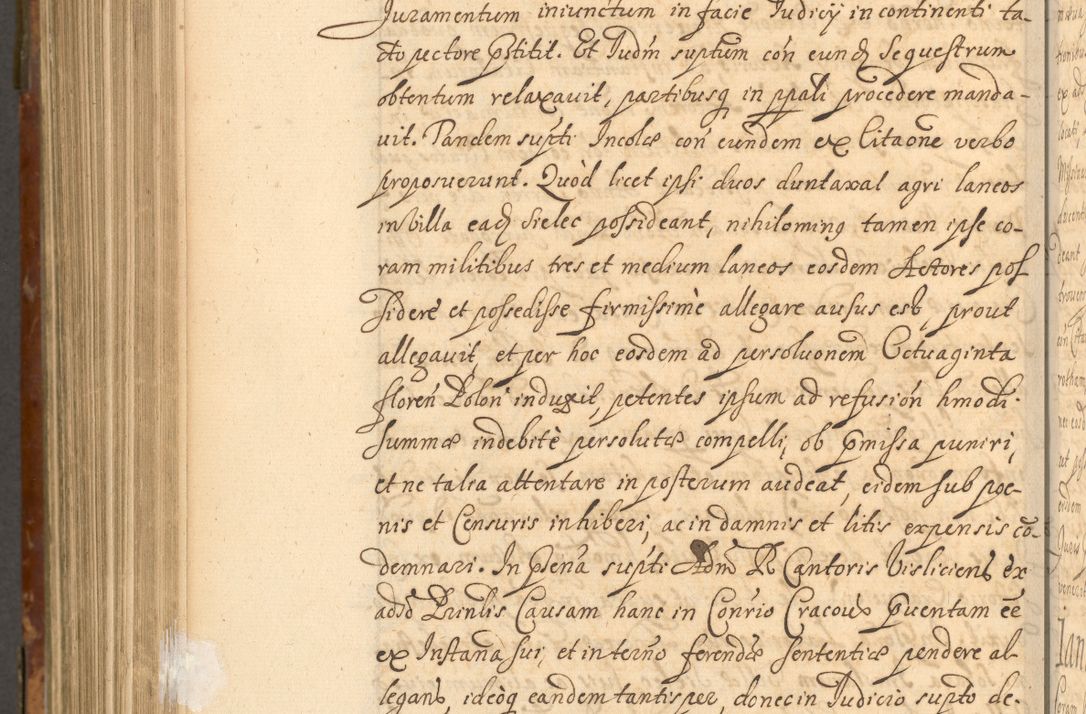 Juramentum iniunctum in facie Judicij in continenti ta-
cto pectore pstitit. Et Judm suptum con eund Sequestrum
obtentum relaxauit, partibusq in ppali procedere manda-
uit. Tandem supti Incolæ con eundem ex Citaone verbo
proposuerunt. Quòd licet ipsi duos duntaxat agri laneos
in Villa ead Sielec possideant, nihiloming tamen ipse co-
ram militibus tres et medium laneos eosdem Actores pos
sidere et possedisse firmissimè allegare ausus est, prout
allegauit, et per hoc eosdem ad persoluonem Octuaginta
floren Polon induxit, petentes ipsum ad refusion hmodi
summæ indebitè persolutæ compelli, ob pmissa puniri,
et ne talia attentare in posterum audeat, eidem sub poe-
nis et Censuris inhiberi, ac in damnis et litis expensis co-
demnari. In psena supti Adm R Cantoris Visliciens ex
ads Prinlis Causam hanc in Conrio Cracou puentam ee
ex Instana sui, et in terno ferendæ sententiæ pendere al-
legans, ideoq eandem tantisper, donec in Judicio supto de-